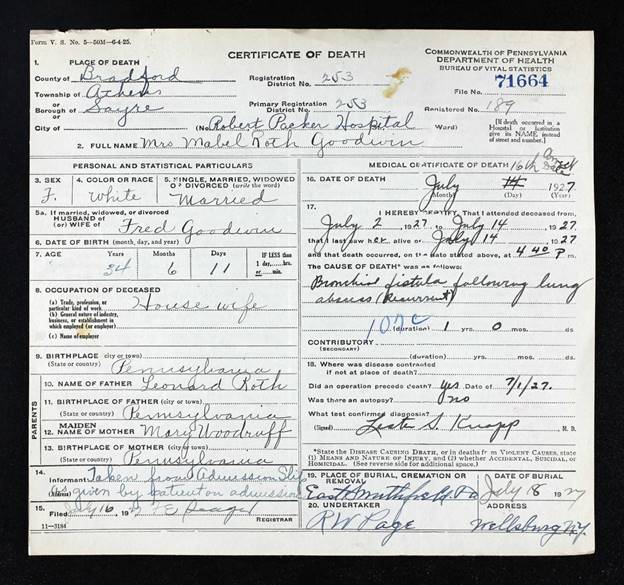 Form V. S. No. 5—50M—6-4-25.
CERTIFICATE OF DEATH
COMMONWEALTH OF PENNSYLVANIA
DEPARTMENT OF HEALTH
BUREAU OF VITAL STATISTICS
1. PLACE OF DEATH
County of Bradford
Township of Athens
Borough of Sayre
City of
Registration District No. 253
Primary Registration District No. 253
File No. 71664
Registered No. 189
(No. Robert Packer Hospital Ward)
[If death occurred in a Hospital or Institution give its NAME instead of street and number.]
2. FULL NAME Mrs Mabel Roth Goodwin
PERSONAL AND STATISTICAL PARTICULARS
3. SEX F.
4. COLOR OR RACE White
5. SINGLE, MARRIED, WIDOWED OR DIVORCED (write the word) Married
5a. If married, widowed, or divorced
HUSBAND of
(or) WIFE of Fred Goodwin
6. DATE OF BIRTH (month, day, and year)
7. AGE Years 34 Months 6 Days 11 IF LESS than 1 day, hrs. or min.
8. OCCUPATION OF DECEASED
(a) Trade, profession, or particular kind of work House wife
(b) General nature of industry, business, or establishment in which employed (or employer)
(c) Name of employer
9. BIRTHPLACE (city or town)
(State or country) Pennsylvania
PARENTS
10. NAME OF FATHER Leonard Roth
11. BIRTHPLACE OF FATHER (city or town)
(State or country) Pennsylvania
12. MAIDEN NAME OF MOTHER Mary Woodruff
13. BIRTHPLACE OF MOTHER (city or town)
(State or country) Pennsylvania
14. Informant Taken from Admission Slip
(Address) as given by patient on admission
15. Filed July 16, 19
REGISTRAR
11—3184
MEDICAL CERTIFICATE OF DEATH
16. DATE OF DEATH July 14 16th 1927
(Month) (Day) (Year)
17. I HEREBY CERTIFY, That I attended deceased from
July 2 1927 to July 14 1927
that I last saw her alive on July 14 1927
and that death occurred, on the date stated above, at 4 40 P m.
The CAUSE OF DEATH* was as follows:
Bronchial fistula following lung
abscess (recurrent)
(duration) 1 yrs. 0 mos. ds.
CONTRIBUTORY
(SECONDARY)
(duration) yrs. mos. ds.
18. Where was disease contracted
if not at place of death?
Did an operation precede death? Yes Date of 7/1/27.
Was there an autopsy? no
What test confirmed diagnosis?
(Signed) Lester S. Knapp M. D.
*State the DISEASE CAUSING DEATH, or in deaths from VIOLENT CAUSES, state (1) MEANS AND NATURE OF INJURY, and (2) whether ACCIDENTAL, SUICIDAL, or HOMICIDAL. (See reverse side for additional space.)
19. PLACE OF BURIAL, CREMATION OR REMOVAL
East Smithfield, Pa
DATE OF BURIAL
July 18 1927
20. UNDERTAKER
R W Page
ADDRESS
Wellsburg N.Y.